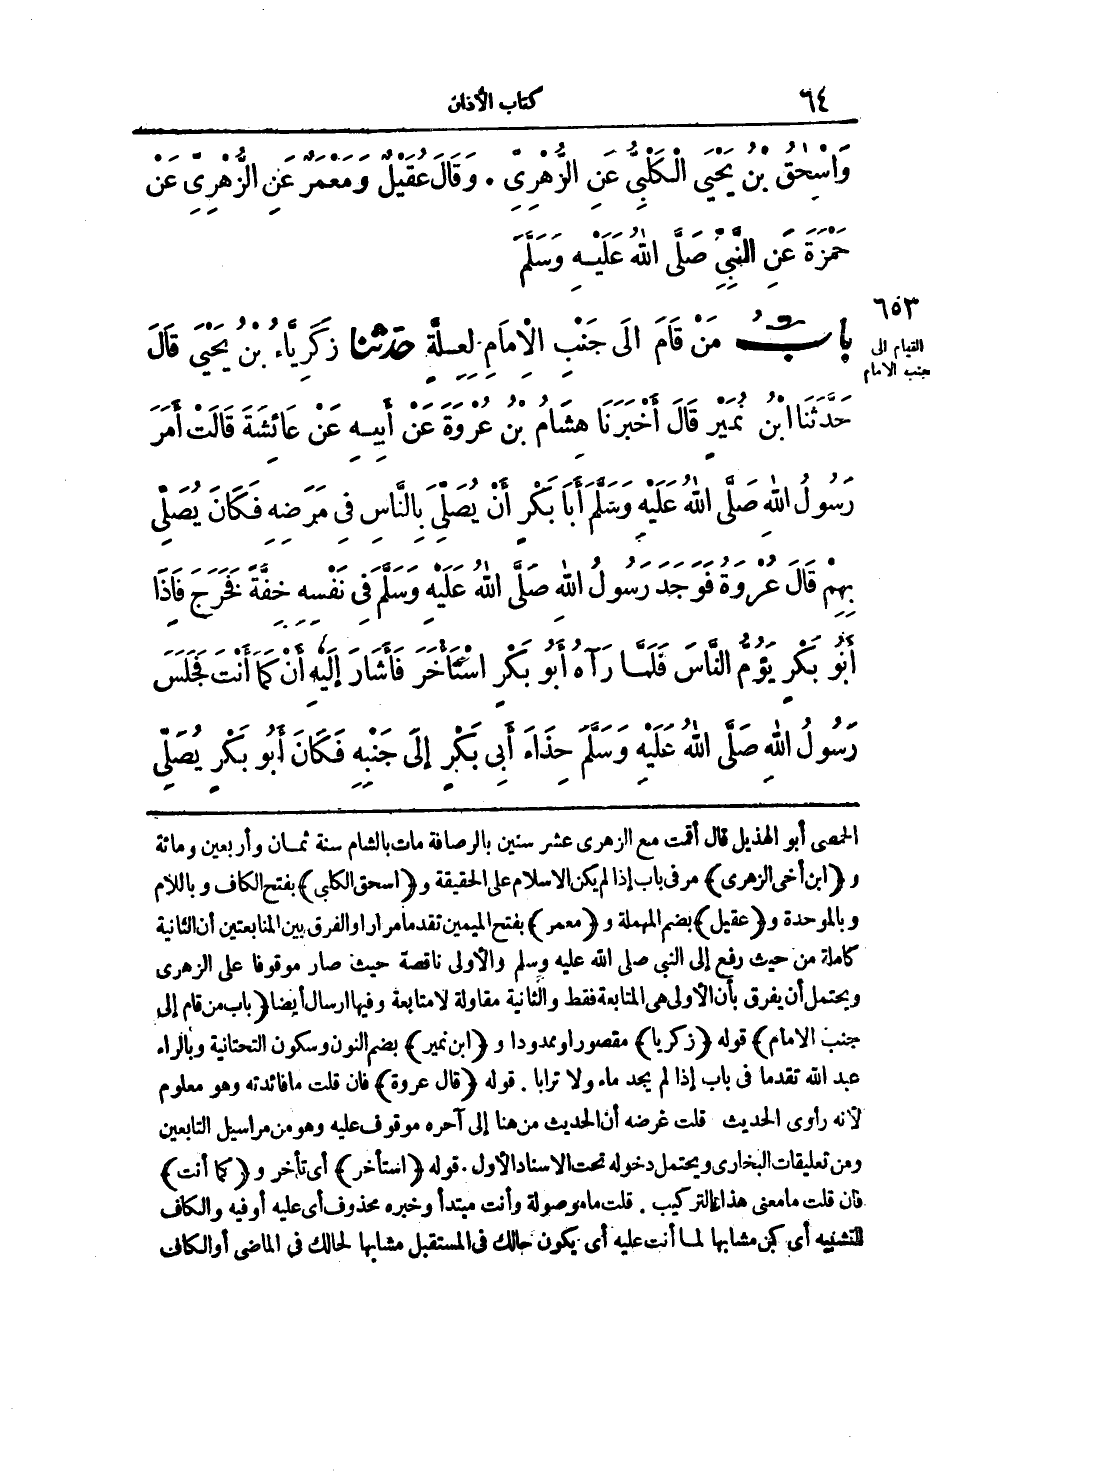 ٦٤
كتاب الأذان
وَإِسْحٰقُ بْنُ يَحْيَى الْكَلْبِيُّ عَنِ الزُّهْرِيِّ . وَقَالَ عُقَيْلٌ وَمَعْمَرٌ عَنِ الزُّهْرِيِّ عَنْ
حَمْزَةَ عَنِ النَّبِيِّ صَلَّى اللهُ عَلَيْهِ وَسَلَّمَ
٦٥٣
القيام الى
جنب الامام
بابُ مَنْ قَامَ الَى جَنْبِ الْإِمَامِ لِعِلَّةٍ حدثنا زَكَرِيَّاءُ بْنُ يَحْيَى قَالَ
حَدَّثَنَا ابْنُ نُمَيْرٍ قَالَ أَخْبَرَنَا هِشَامُ بْنُ عُرْوَةَ عَنْ أَبِيهِ عَنْ عَائِشَةَ قَالَتْ أَمَرَ
رَسُولُ اللهِ صَلَّى اللهُ عَلَيْهِ وَسَلَّمَ أَبَا بَكْرٍ أَنْ يُصَلِّيَ بِالنَّاسِ فِي مَرَضِهِ فَكَانَ يُصَلِّي
بِهِمْ قَالَ عُرْوَةُ فَوَجَدَ رَسُولُ اللهِ صَلَّى اللهُ عَلَيْهِ وَسَلَّمَ فِي نَفْسِهِ خِفَّةً فَخَرَجَ فَإِذَا
أَبُو بَكْرٍ يَؤُمُّ النَّاسَ فَلَمَّا رَآهُ أَبُو بَكْرٍ اسْتَأْخَرَ فَأَشَارَ إِلَيْهِ أَنْ كَمَا أَنْتَ فَجَلَسَ
رَسُولُ اللهِ صَلَّى اللهُ عَلَيْهِ وَسَلَّمَ حِذَاءَ أَبِي بَكْرٍ إِلَى جَنْبِهِ فَكَانَ أَبُو بَكْرٍ يُصَلِّي
الحمصى أبو الهذيل قال أقمت مع الزهرى عشر سنين بالرصافة مات بالشام سنة ثمان وأربعين ومائة
و ﴿ابن أخى الزهرى﴾ مر فى باب إذا لم يكن الاسلام على الحقيقة و ﴿اسحق الكلبى﴾ بفتح الكاف وباللام
وبالموحدة و ﴿عقيل﴾ بضم المهملة و ﴿معمر﴾ بفتح الميمين تقدما مرارا والفرق بين المتابعتين أن الثانية
كاملة من حيث رفع إلى النبى صلى الله عليه وسلم والأولى ناقصة حيث صار موقوفا على الزهرى
ويحتمل أن يفرق بأن الأولى هى المتابعة فقط والثانية مقاولة لا متابعة وفيها ارسال أيضا ﴿باب من قام إلى
جنب الامام﴾ قوله ﴿زكريا﴾ مقصورا وممدودا و ﴿ابن نمير﴾ بضم النون وسكون التحتانية وبالراء
عبد الله تقدما فى باب إذا لم يجد ماء ولا ترابا . قوله ﴿قال عروة﴾ فان قلت ما فائدته وهو معلوم
لأنه راوى الحديث قلت غرضه أن الحديث من هنا إلى آخره موقوف عليه وهو من مراسيل التابعين
ومن تعليقات البخارى ويحتمل دخوله تحت الاسناد الأول . قوله ﴿استأخر﴾ أى تأخر و ﴿كما أنت﴾
فان قلت ما معنى هذا التركيب . قلت ما موصولة وأنت مبتدأ وخبره محذوف أى عليه أو فيه والكاف
للتشبيه أى كن مشابها لما أنت عليه أى يكون حالك فى المستقبل مشابها لحالك فى الماضى أو الكاف